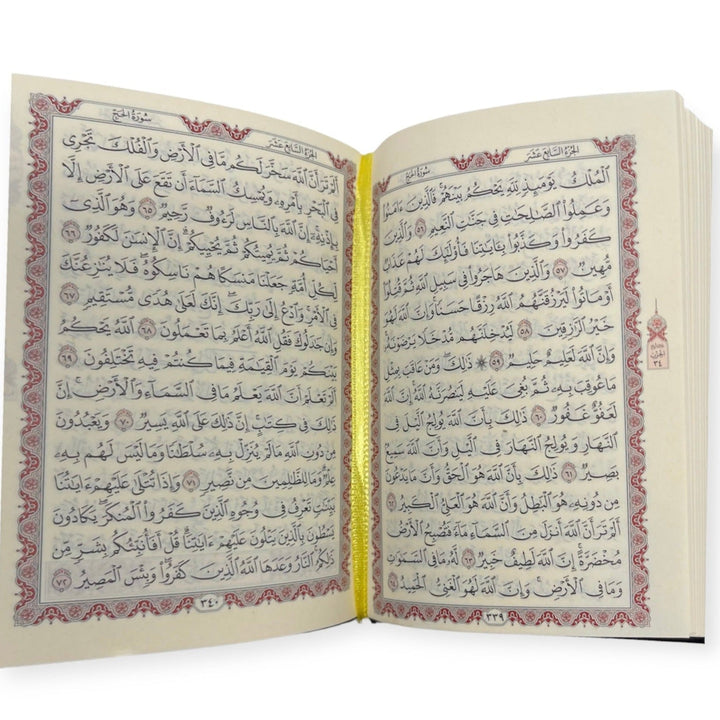 سُورَةُ الحَجّ
الجُزْءُ السَّابِعَ عَشَرَ
ٱلْمُلْكُ يَوْمَئِذٍ لِّلَّهِ يَحْكُمُ بَيْنَهُمْ ۚ فَٱلَّذِينَ ءَامَنُوا۟
وَعَمِلُوا۟ ٱلصَّٰلِحَٰتِ فِى جَنَّٰتِ ٱلنَّعِيمِ ٥٦ وَٱلَّذِينَ
كَفَرُوا۟ وَكَذَّبُوا۟ بِـَٔايَٰتِنَا فَأُو۟لَٰٓئِكَ لَهُمْ عَذَابٌ
مُّهِينٌ ٥٧ وَٱلَّذِينَ هَاجَرُوا۟ فِى سَبِيلِ ٱللَّهِ ثُمَّ قُتِلُوٓا۟
أَوْ مَاتُوا۟ لَيَرْزُقَنَّهُمُ ٱللَّهُ رِزْقًا حَسَنًا ۚ وَإِنَّ ٱللَّهَ لَهُوَ
خَيْرُ ٱلرَّٰزِقِينَ ٥٨ لَيُدْخِلَنَّهُم مُّدْخَلًا يَرْضَوْنَهُۥ ۗ
وَإِنَّ ٱللَّهَ لَعَلِيمٌ حَلِيمٌ ٥٩ ۞ ذَٰلِكَ ۖ وَمَنْ عَاقَبَ بِمِثْلِ
مَا عُوقِبَ بِهِۦ ثُمَّ بُغِىَ عَلَيْهِ لَيَنصُرَنَّهُ ٱللَّهُ ۗ إِنَّ ٱللَّهَ
لَعَفُوٌّ غَفُورٌ ٦٠ ذَٰلِكَ بِأَنَّ ٱللَّهَ يُولِجُ ٱلَّيْلَ فِى
ٱلنَّهَارِ وَيُولِجُ ٱلنَّهَارَ فِى ٱلَّيْلِ وَأَنَّ ٱللَّهَ سَمِيعٌۢ
بَصِيرٌ ٦١ ذَٰلِكَ بِأَنَّ ٱللَّهَ هُوَ ٱلْحَقُّ وَأَنَّ مَا يَدْعُونَ
مِن دُونِهِۦ هُوَ ٱلْبَٰطِلُ وَأَنَّ ٱللَّهَ هُوَ ٱلْعَلِىُّ ٱلْكَبِيرُ ٦٢
أَلَمْ تَرَ أَنَّ ٱللَّهَ أَنزَلَ مِنَ ٱلسَّمَآءِ مَآءً فَتُصْبِحُ ٱلْأَرْضُ
مُخْضَرَّةً ۗ إِنَّ ٱللَّهَ لَطِيفٌ خَبِيرٌ ٦٣ لَّهُۥ مَا فِى ٱلسَّمَٰوَٰتِ
وَمَا فِى ٱلْأَرْضِ ۗ وَإِنَّ ٱللَّهَ لَهُوَ ٱلْغَنِىُّ ٱلْحَمِيدُ ٦٤
٣٣٩
الحزب
٣٤
الجُزْءُ السَّابِعَ عَشَرَ
سُورَةُ الحَجّ
أَلَمْ تَرَ أَنَّ ٱللَّهَ سَخَّرَ لَكُم مَّا فِى ٱلْأَرْضِ وَٱلْفُلْكَ تَجْرِى
فِى ٱلْبَحْرِ بِأَمْرِهِۦ وَيُمْسِكُ ٱلسَّمَآءَ أَن تَقَعَ عَلَى ٱلْأَرْضِ إِلَّا
بِإِذْنِهِۦٓ ۗ إِنَّ ٱللَّهَ بِٱلنَّاسِ لَرَءُوفٌ رَّحِيمٌ ٦٥ وَهُوَ ٱلَّذِىٓ
أَحْيَاكُمْ ثُمَّ يُمِيتُكُمْ ثُمَّ يُحْيِيكُمْ ۗ إِنَّ ٱلْإِنسَٰنَ لَكَفُورٌ ٦٦
لِّكُلِّ أُمَّةٍ جَعَلْنَا مَنسَكًا هُمْ نَاسِكُوهُ ۖ فَلَا يُنَٰزِعُنَّكَ
فِى ٱلْأَمْرِ ۚ وَٱدْعُ إِلَىٰ رَبِّكَ ۖ إِنَّكَ لَعَلَىٰ هُدًى مُّسْتَقِيمٍ ٦٧
وَإِن جَٰدَلُوكَ فَقُلِ ٱللَّهُ أَعْلَمُ بِمَا تَعْمَلُونَ ٦٨ ٱللَّهُ يَحْكُمُ
بَيْنَكُمْ يَوْمَ ٱلْقِيَٰمَةِ فِيمَا كُنتُمْ فِيهِ تَخْتَلِفُونَ ٦٩
أَلَمْ تَعْلَمْ أَنَّ ٱللَّهَ يَعْلَمُ مَا فِى ٱلسَّمَآءِ وَٱلْأَرْضِ ۗ إِنَّ
ذَٰلِكَ فِى كِتَٰبٍ ۚ إِنَّ ذَٰلِكَ عَلَى ٱللَّهِ يَسِيرٌ ٧٠ وَيَعْبُدُونَ
مِن دُونِ ٱللَّهِ مَا لَمْ يُنَزِّلْ بِهِۦ سُلْطَٰنًا وَمَا لَيْسَ لَهُم بِهِۦ
عِلْمٌ ۗ وَمَا لِلظَّٰلِمِينَ مِن نَّصِيرٍ ٧١ وَإِذَا تُتْلَىٰ عَلَيْهِمْ ءَايَٰتُنَا
بَيِّنَٰتٍ تَعْرِفُ فِى وُجُوهِ ٱلَّذِينَ كَفَرُوا۟ ٱلْمُنكَرَ ۖ يَكَادُونَ
يَسْطُونَ بِٱلَّذِينَ يَتْلُونَ عَلَيْهِمْ ءَايَٰتِنَا ۗ قُلْ أَفَأُنَبِّئُكُم بِشَرٍّ مِّن
ذَٰلِكُمُ ۗ ٱلنَّارُ وَعَدَهَا ٱللَّهُ ٱلَّذِينَ كَفَرُوا۟ ۖ وَبِئْسَ ٱلْمَصِيرُ ٧٢
٣٤٠